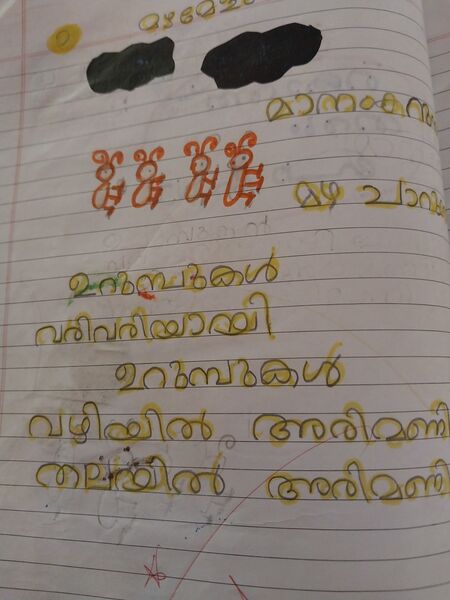 മാനംകറ
മഴ ചാറ
ഉറുമ്പുകൾ
വരിവരിയായി
ഉറുമ്പുകൾ
വഴിയിൽ അരിമണി
തലയിൽ അരിമണി